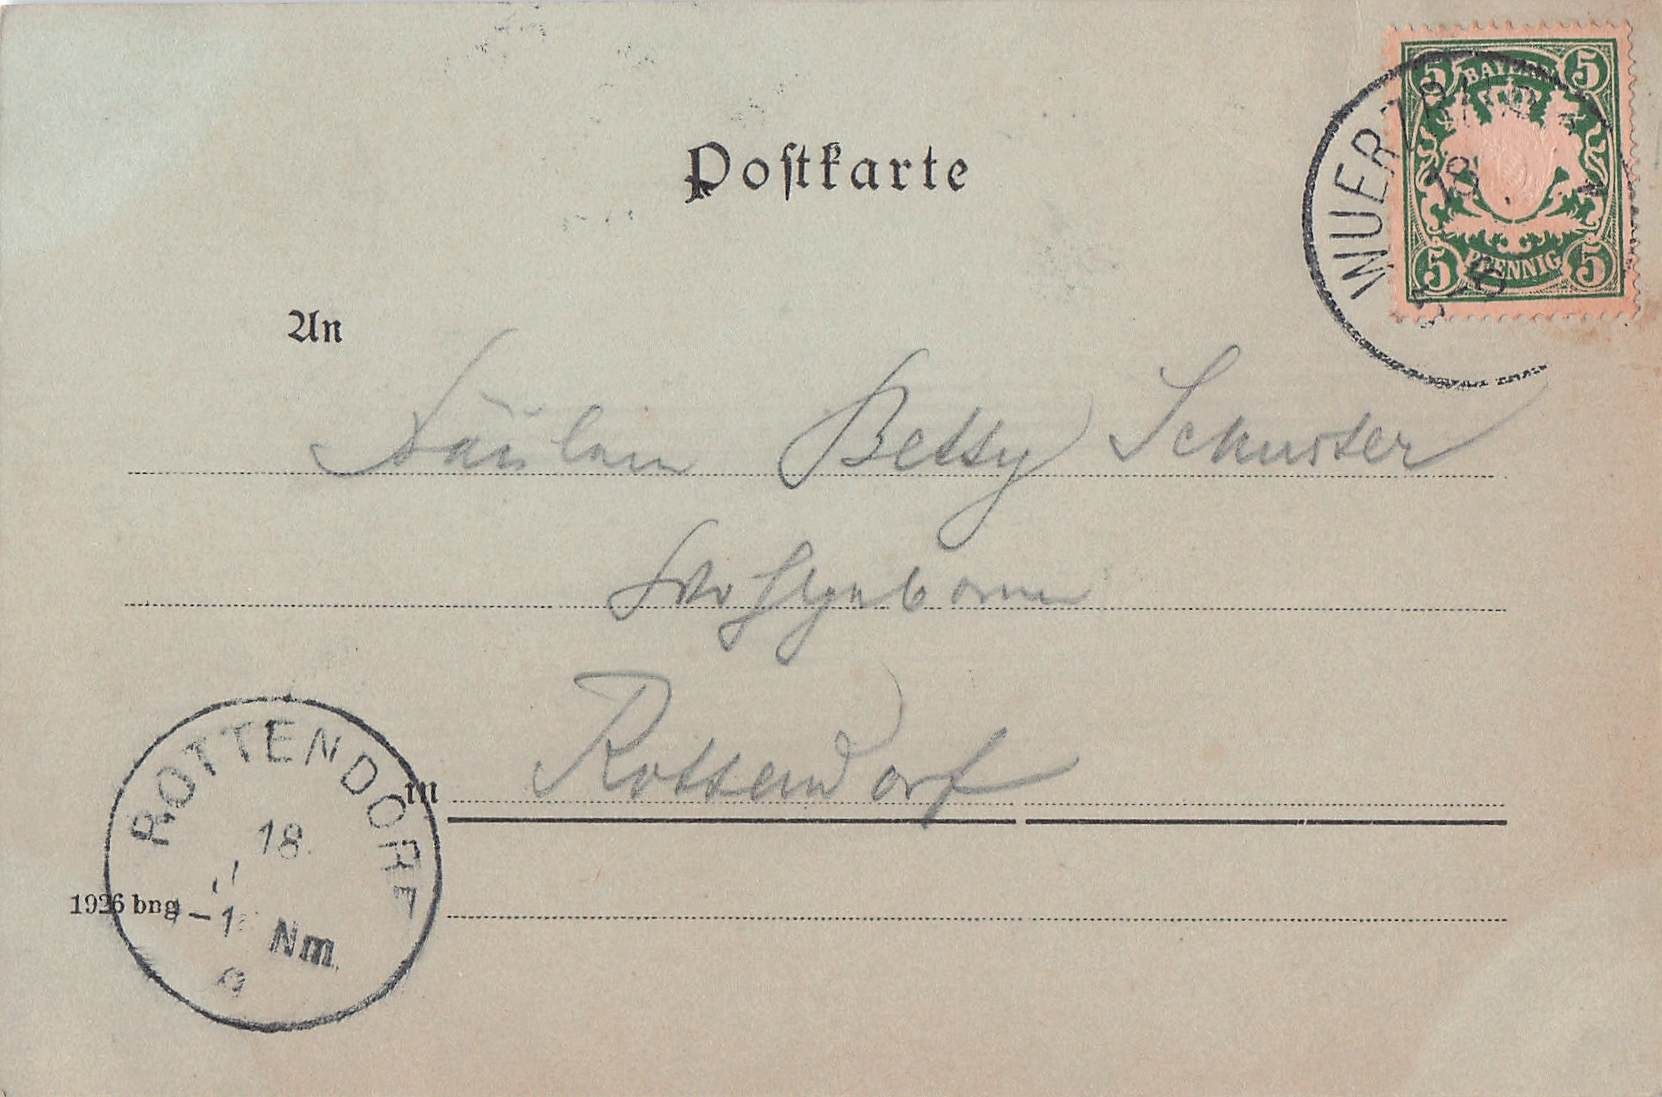 Postkarte
5 BAYERN 5
5 PFENNIG 5
WUERZBURG
18
An
Fräulein Betty Schuster
Wohlgeboren
in Rottendorf
ROTTENDORF
18.
Nm.
1926 bng